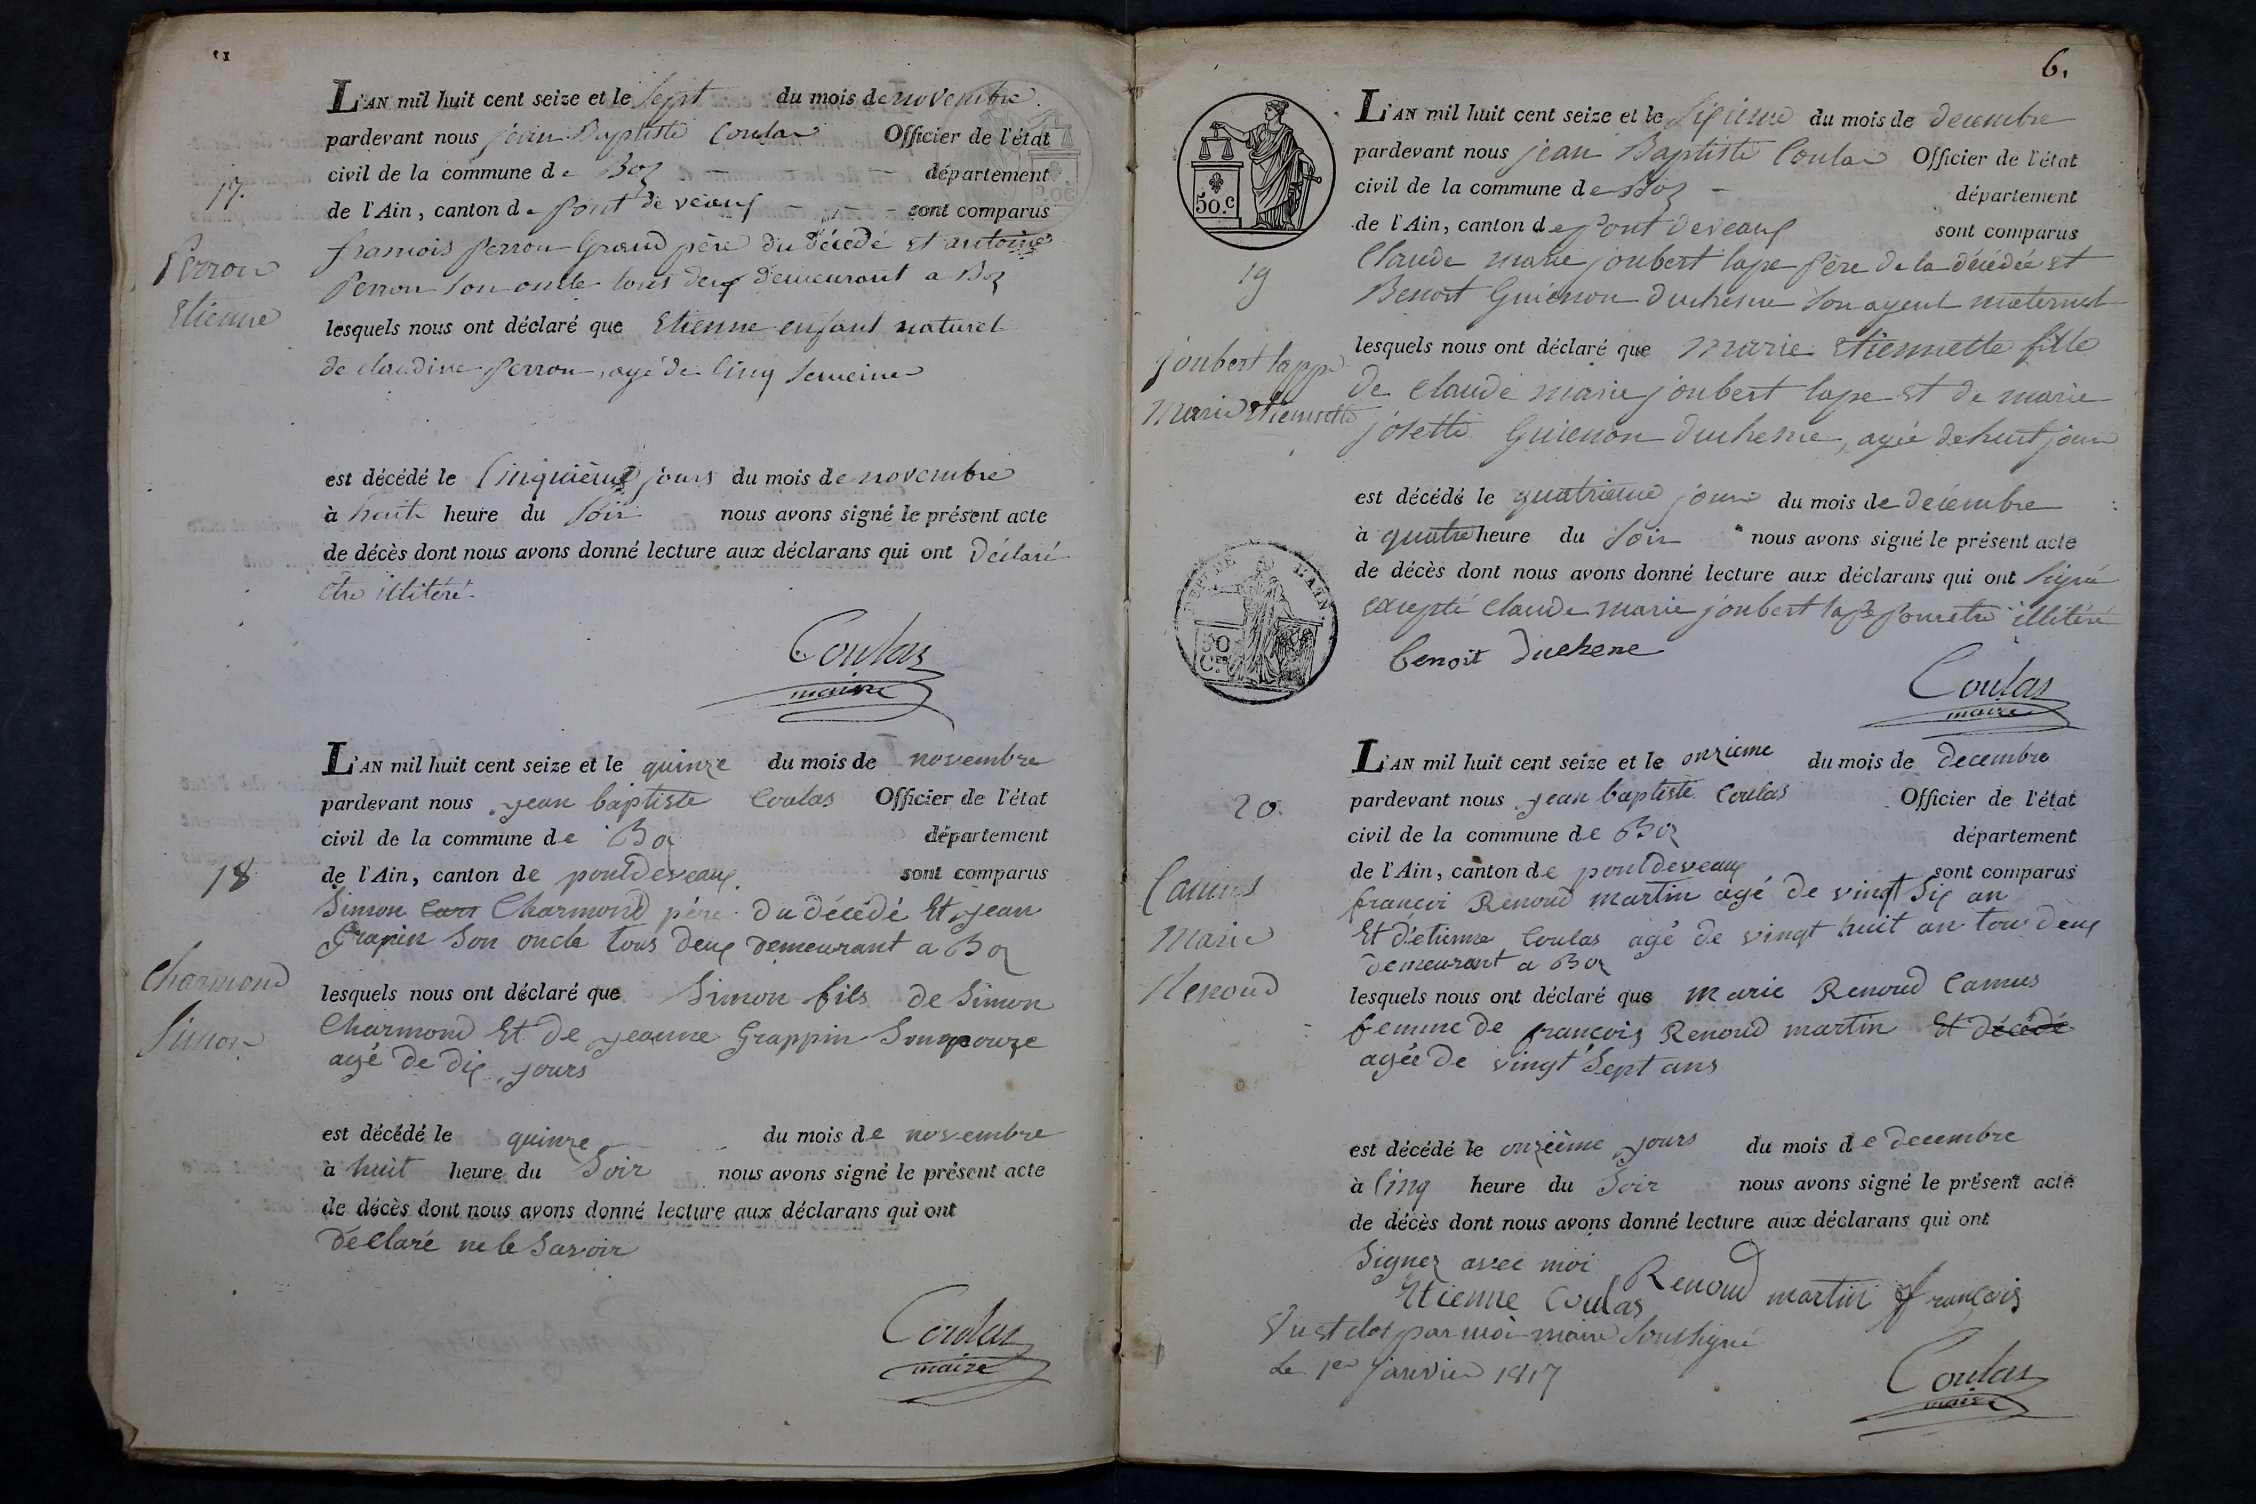 17.
Perron
Etienne
L'AN mil huit cent seize et le Sept du mois de novembre
pardevant nous jean Baptiste Coulas Officier de l'état
civil de la commune de Boz département
de l'Ain, canton de Pont de veaux sont comparus
francois perron Grand père du décédé et antoine
perron Son oncle tous deux demeurant a Boz
lesquels nous ont déclaré que Etienne enfant naturel
de claudine perron, agé de Cinq Semeine
est décédé le Cinquième jours du mois de novembre
à huit heure du Soir nous avons signé le présent acte
de décès dont nous avons donné lecture aux déclarans qui ont déclaré
etre illitéré.
Coulas
maire
18
Charmond
Simon
L'AN mil huit cent seize et le quinze du mois de novembre
pardevant nous jean baptiste Coulas Officier de l'état
civil de la commune de Boz département
de l'Ain, canton de pontdeveaux sont comparus
Simon Charmond père du décédé Et jean
Grapin Son oncle tous deux demeurant a Boz
lesquels nous ont déclaré que Simon fils de Simon
Charmond Et de jeanne Grappin
agé de dix jours
est décédé le quinze du mois de novembre
à huit heure du Soir nous avons signé le présent acte
de décès dont nous avons donné lecture aux déclarans qui ont
déClaré ne le Savoir
Coulas
maire
6.
50.c
19
joubert lappe
Marie Etiennette
L'AN mil huit cent seize et le Sixieme du mois de decembre
pardevant nous jean Baptiste Coulas Officier de l'état
civil de la commune de Boz département
de l'Ain, canton de pont deveaux sont comparus
Claude marie joubert lape père de la décédée et
Benoit Guienon duchesne Son ayeul maternel
lesquels nous ont déclaré que Marie Etiennette fille
de Claude marie joubert lape et de marie
josette Guienon duchesne, agée de huit jours
est décédé le quatrieme jour du mois de decembre
à quatre heure du Soir nous avons signé le présent acte
de décès dont nous avons donné lecture aux déclarans qui ont Signé
excepté Claude marie joubert lape pour etre illitéré
DEP. DE L'AIN.
50
Cen
benoit duchene
Coulas
maire
20.
Camus
Marie
Renoud
L'AN mil huit cent seize et le onzieme du mois de decembre
pardevant nous jean baptiste Coulas Officier de l'état
civil de la commune de Boz département
de l'Ain, canton de pontdeveaux sont comparus
françoi Renoud martin agé de vingt Six an
Et d'etienne Coulas agé de vingt huit an tou deux
demeurant a Boz
lesquels nous ont déclaré que marie Renoud Camus
femme de françois Renoud martin Et décédé
agée de vingt Sept ans
est décédé le onzieme jours du mois de decembre
à Cinq heure du Soir nous avons signé le présent acte
de décès dont nous avons donné lecture aux déclarans qui ont
Signez avec moi
Renoud martin françois
Etienne Coulas
Vu et clos par moi maire Soussigné
Le 1er janvier 1817
Coulas
maire